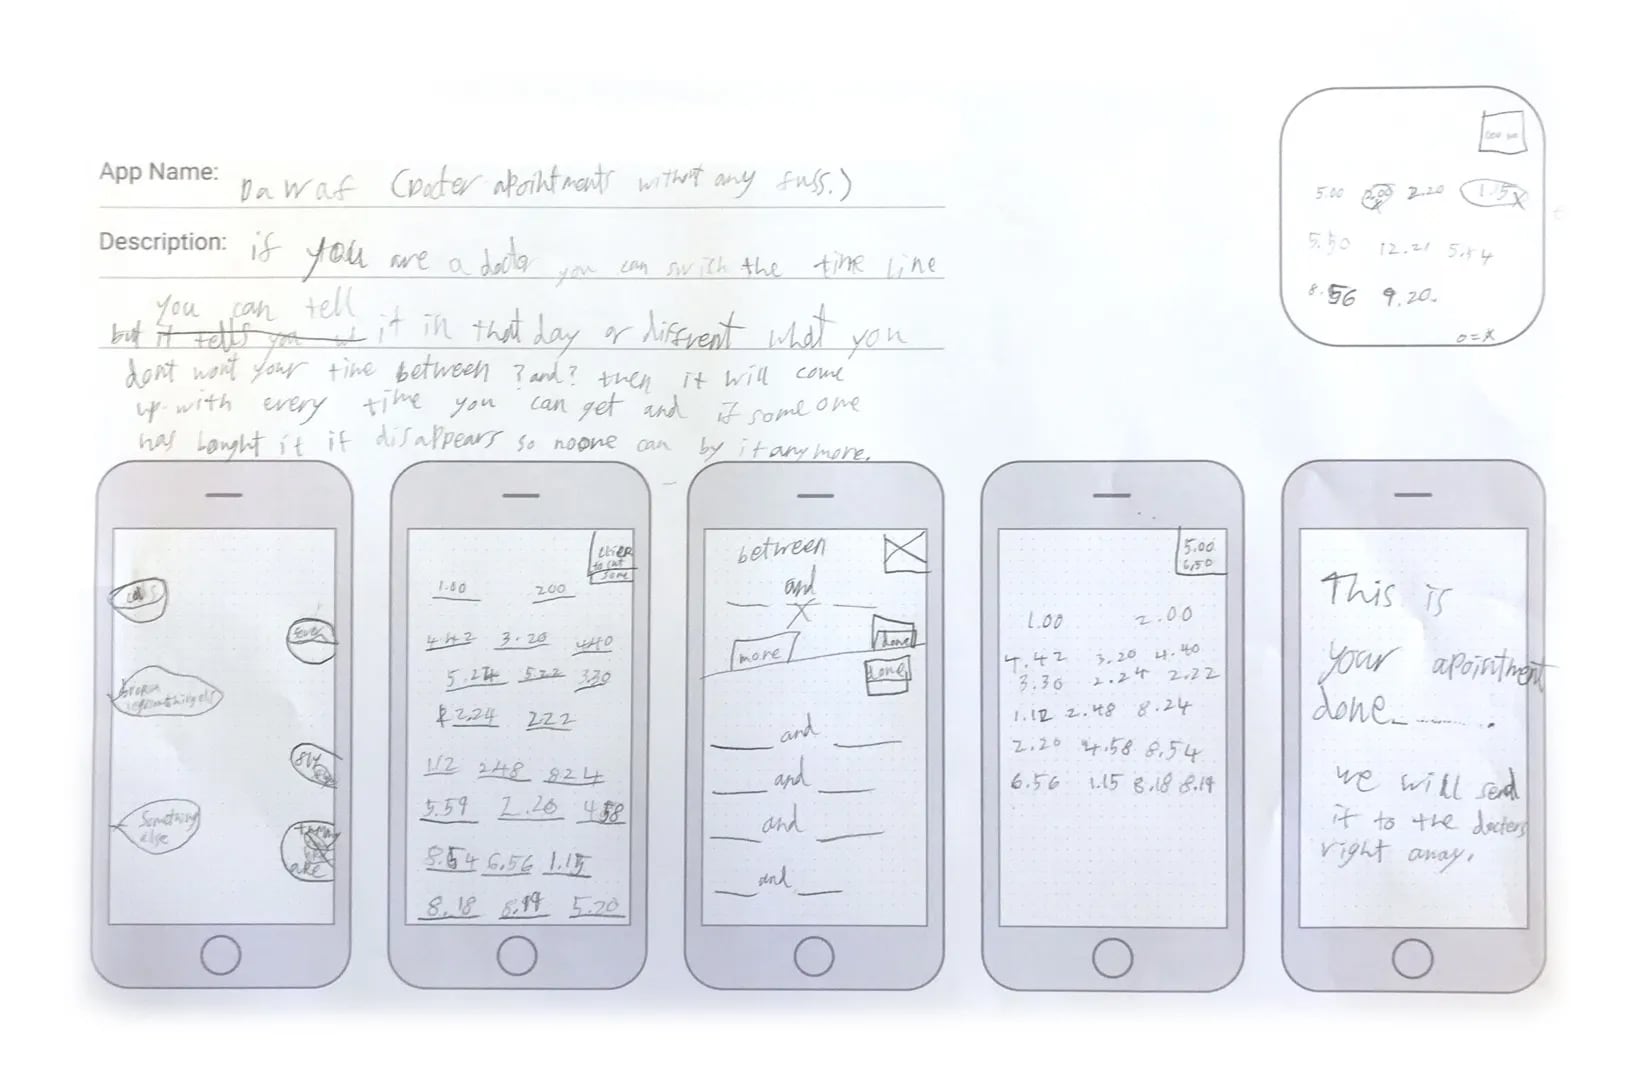 App Name: Dawaf (Docter apointments without any fuss.)
Description: if you are a doctor you can swich the time line
you can tell
but it tells you it in that day or diffrent what you
dont wont your time between ? and ? then it will come
up with every time you can get and if some one
has bought it it disappears so noone can by it anymore.
5.00 2.00 2.20 1.15 x
5.50 12.21 5.54
8.56 9.20.
o=x
Something
else
to cut
some
1.00 200
4.42 3.20 440
5.24 522 330
2.24 222
1.12 248 824
5.59 2.20 458
8.54 6.56 1.15
8.18 8.19 5.20
between
and
X
more done
done
and
and
and
and
5.00
6.50
1.00 2.00
4.42 3.20 4.40
3.30 2.24 2.22
1.12 2.48 8.24
2.20 4.58 8.54
6.56 1.15 8.18 8.19
This is
your apointment
done..........
we will send
it to the docters
right away.